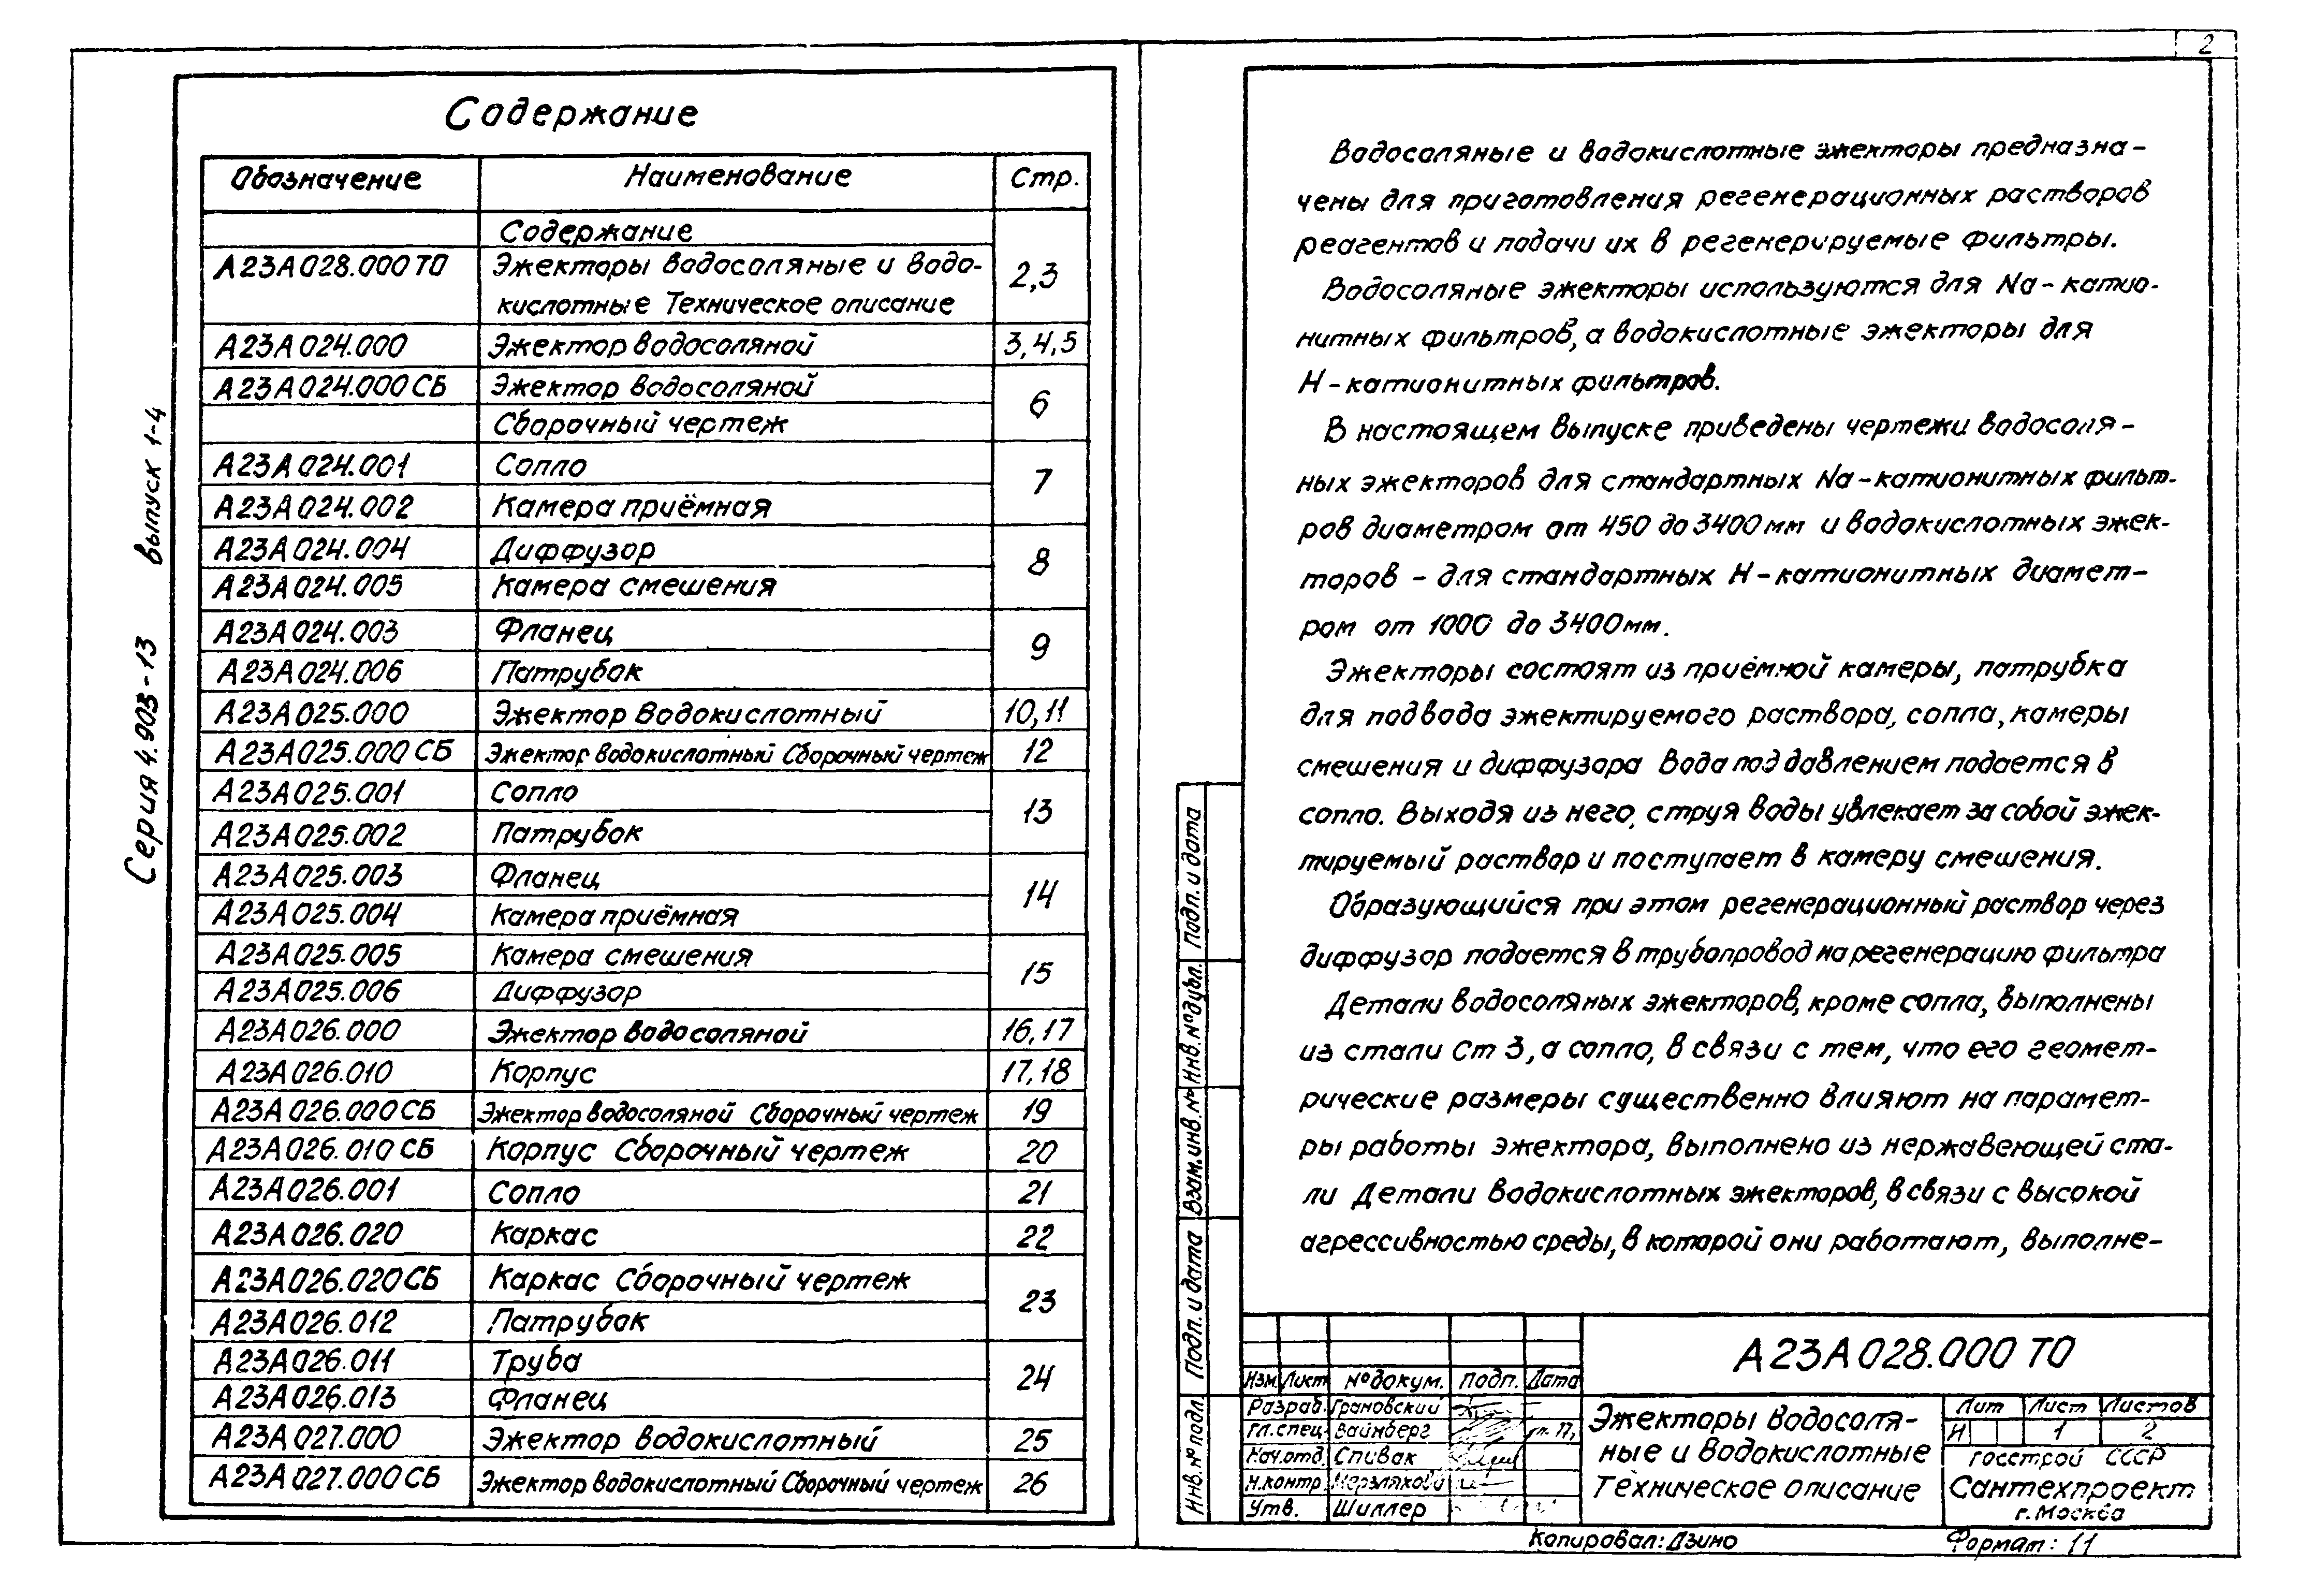 2
Серия 4.903-13 выпуск 1-4
Содержание
Обозначение Наименование Стр.
Содержание
А23А028.000 ТО Эжекторы водосоляные и водо- 2,3
кислотные Техническое описание
А23А024.000 Эжектор водосоляной 3,4,5
А23А024.000 СБ Эжектор водосоляной 6
Сборочный чертеж
А23А024.001 Сопло 7
А23А024.002 Камера приёмная
А23А024.004 Диффузор 8
А23А024.005 Камера смешения
А23А024.003 Фланец 9
А23А024.006 Патрубок
А23А025.000 Эжектор водокислотный 10,11
А23А025.000 СБ Эжектор водокислотный Сборочный чертеж 12
А23А025.001 Сопло 13
А23А025.002 Патрубок
А23А025.003 Фланец 14
А23А025.004 Камера приёмная
А23А025.005 Камера смешения 15
А23А025.006 Диффузор
А23А026.000 Эжектор водосоляной 16,17
А23А026.010 Корпус 17,18
А23А026.000 СБ Эжектор водосоляной Сборочный чертеж 19
А23А026.010 СБ Корпус Сборочный чертеж 20
А23А026.001 Сопло 21
А23А026.020 Каркас 22
А23А026.020 СБ Каркас Сборочный чертеж 23
А23А026.012 Патрубок
А23А026.011 Труба 24
А23А026.013 Фланец
А23А027.000 Эжектор водокислотный 25
А23А027.000 СБ Эжектор водокислотный Сборочный чертеж 26
Водосоляные и водокислотные эжекторы предназна-
чены для приготовления регенерационных растворов
реагентов и подачи их в регенерируемые фильтры.
Водосоляные эжекторы используются для Na-катио-
нитных фильтров, а водокислотные эжекторы для
Н-катионитных фильтров.
В настоящем выпуске приведены чертежи водосоля-
ных эжекторов для стандартных Na-катионитных фильт-
ров диаметром от 450 до 3400 мм и водокислотных эжек-
торов - для стандартных Н-катионитных диамет-
ром от 1000 до 3400 мм.
Эжекторы состоят из приёмной камеры, патрубка
для подвода эжектируемого раствора, сопла, камеры
смешения и диффузора Вода под давлением подается в
сопло. Выходя из него, струя воды увлекает за собой эжек-
тируемый раствор и поступает в камеру смешения.
Образующийся при этом регенерационный раствор через
диффузор подается в трубопровод на регенерацию фильтра
Детали водосоляных эжекторов, кроме сопла, выполнены
из стали Ст 3, а сопло, в связи с тем, что его геомет-
рические размеры существенно влияют на парамет-
ры работы эжектора, выполнено из нержавеющей ста-
ли Детали водокислотных эжекторов, в связи с высокой
агрессивностью среды, в которой они работают, выполне-
Подп. и дата
Инв. № дубл.
Взам. инв. №
Подп. и дата
Инв. № подл.
А23А028.000 ТО
Изм. Лист № докум. Подп. Дата
Разраб. Грановский
Гл. спец. Вайнберг
Нач. отд. Спивак
Н. контр.
Утв. Шиллер
Эжекторы водосоля-
ные и водокислотные
Техническое описание
Лит Лист Листов
И 1 2
Госстрой СССР
Сантехпроект
г. Москва
Копировал: Дзино Формат: 11